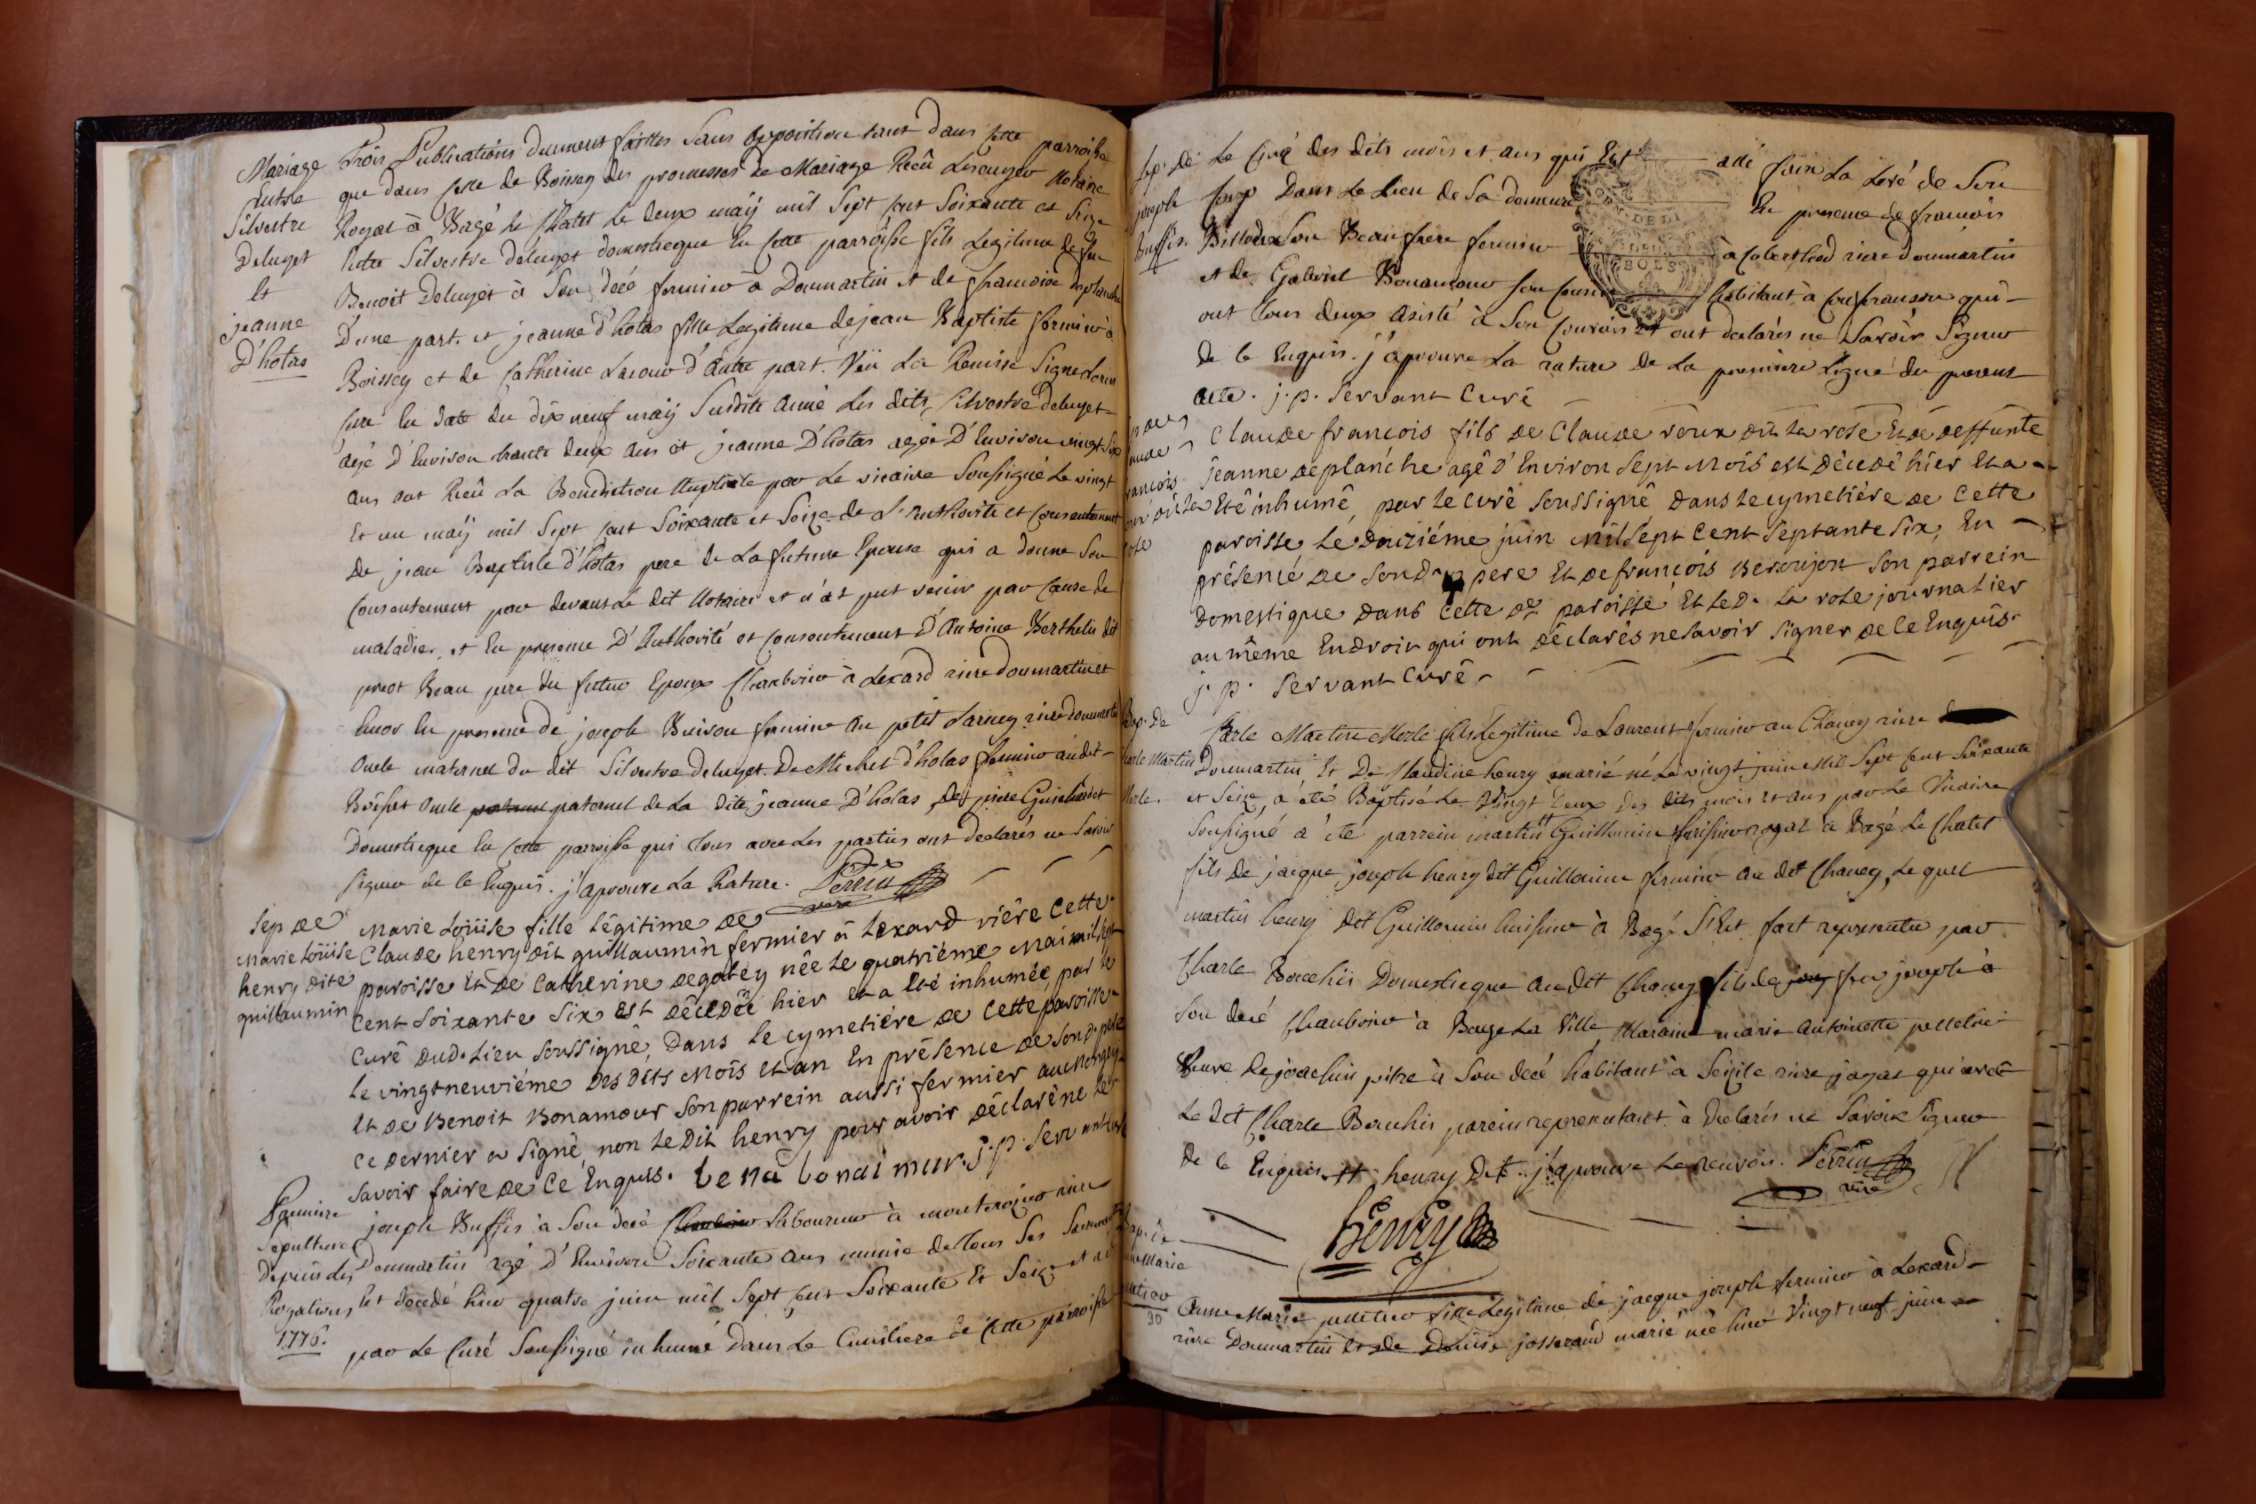 Mariage
Entre
Silvestre
Deluget
Et
jeanne
D'hotas
Trois Publications duement faittes Sans Opposition tant dans cette parroisse
que dans celle de Boissey des promesses de Mariage Reçû Notaire
Royal à Bagé le Chatel le deux maÿ mil Sept cent Soixante et Seize
Entre Silvestre deluget domestique En cette parroisse fils Legitime de feu
Benoit Deluget à Son décé fermier à Domartin et de francoise deplanche
D'une part. et jeanne d'hotas fille Legitime de jean Baptiste fermier à
Boissey et de Catherine Lacour d'autre part. Vû La Remise Signé
curé En date du dix neuf maÿ Susdite année Les dits Silvestre deluget
agé D'Environ trante deux ans et jeanne D'hotas agée D'Environ vingt Six
ans ont Reçû La Benediction Nuptiale par Le vicaire Soussigné Le vingt
Et un maÿ mil Sept cent Soixante et Seize de L'Authorité et Consentement
De jean Baptiste d'hotas pere de La future Epouse qui a donné Son
Consentement par devant Le dit Notaire et n'at put venir par Cause de
maladie, et En presence D'Authorité et consentement D'Antoine Berthelin dit
prost Beau pere du futur Epoux Charbonier à Lexard riere domartin et
Encor En presence de joseph Buison fermier au petit Larney riere domartin
Oncle maternel du dit Silvestre deluget. De Michel D'hotas fermier au dit
Boissey Oncle paternel de La dite jeanne D'hotas, De pierre Guichardet
Domestique En cette parroisse qui Tous avec Les parties ont declarés ne Savoir
Signer de ce Enquis. j'aprouve La Rature. Perrin
vicre
Sep de
Marie Loüise
henry dite
guillaumin
Marie Loüise fille Légitime de
Claude henry dit guillaumin fermier à Lexard riére Cette
paroisse Et de Catherine degatey née Le quatriéme Mai mil Sept
Cent Soixante Six Est décedée hier et a Eté inhumée par le
Curé dud. Lieu Soussigné, dans le cymetiére de Cette paroisse
le vingt neuviéme des dits Mois et an En présence de son d. pere
Et de Benoit Bonamour Son parrein aussi fermier au
Ce dernier a Signé, non le dit henry pour avoir déclaré ne le
Savoir faire de Ce Enquis. bena bonai mur. j. p. Servant curé
Premiere
Sepulture
depuis les
Rogations
1776.
joseph Buffis à Son decé Laboureur à montcroiser riere
Domartin agé D'Environ Soixante ans munie de Tous Ses Sacrements
Est decedé hier quatre juin mil Sept cent Soixante Et Seize et a été
par Le Curé Soussigné inhumé dans Le Cimitiere de Cette parroisse
Sep. de
joseph
Buffis.
Le Cinq des dits mois et ans qui Est allé faire La Levé de Son
Corp Dans Le Lieu de Sa demeure En presence de francois
Billoud Son Beau frere fermier à Coberthoud riere doumartin
et de Gabriel Bonamour Son Cousin habitant à Confranson qui
ont Tous deux Asisté à Son Convois Et ont declarés ne Savoir Signer
de ce Enquis. j'aprouve La rature de La premiere Ligne du present
acte. j. p. Servant Curé
Claude françois fils de Claude roux dit la rose Et de deffunte
jeanne deplanche agé d'Environ Sept Mois est décédé hier Et a
Eté inhumé, par le curé Soussigné dans le cymetiére de Cette
paroisse le douziéme juin Mil Sept Cent Septante Six, En
présence de Son d. pere Et de françois Beroujon Son parrein
domestique dans Cette de paroisse Et le d. La rose journalier
au même Endroit qui ont déclarés ne Savoir Signer de Ce Enquis.
j. p. Servant Curé
Bap. de
Carle Martin
Merle.
Carle Martin Merle fils Legitime de Laurent fermier au Chaney riere
Doumartin, Et De Claudine henry marié né Le vingt juin Mil Sept cent Soixante
et Seize, a été Baptisé Le Vingt Deux des dits mois et ans par Le Vicaire
Soussigné a été parrein martin tt Guillaumin huissier royal à Bagé Le Chatel
fils de jacque joseph henry dit Guillaumin fermier au dit Chaney, Le quel
martin henry dit Guillaumin huissier à Bagé S'Est fait representer par
Charle Bouchis Domestique au dit Chaney fils de feu joseph à
Son decé Charbonier à Bauge La Ville, Maraine marie Antoinette pelletier
Veuve de joachin pitre à Son decé habitant à riere jayat qui avec
Le dit Charle Bouchis parein representant à Declarés ne Savoir Signer
de ce Enquis. tt henry Dit. j'aprouve Le renvois. Perrin
vicre
henry
Bap. de
Marie
90
Anne Marie pelletier fille Legitime de jacque joseph fermier à Lexard
riere Doumartin Et de Denise josserand marié née hier Vingt neuf juin